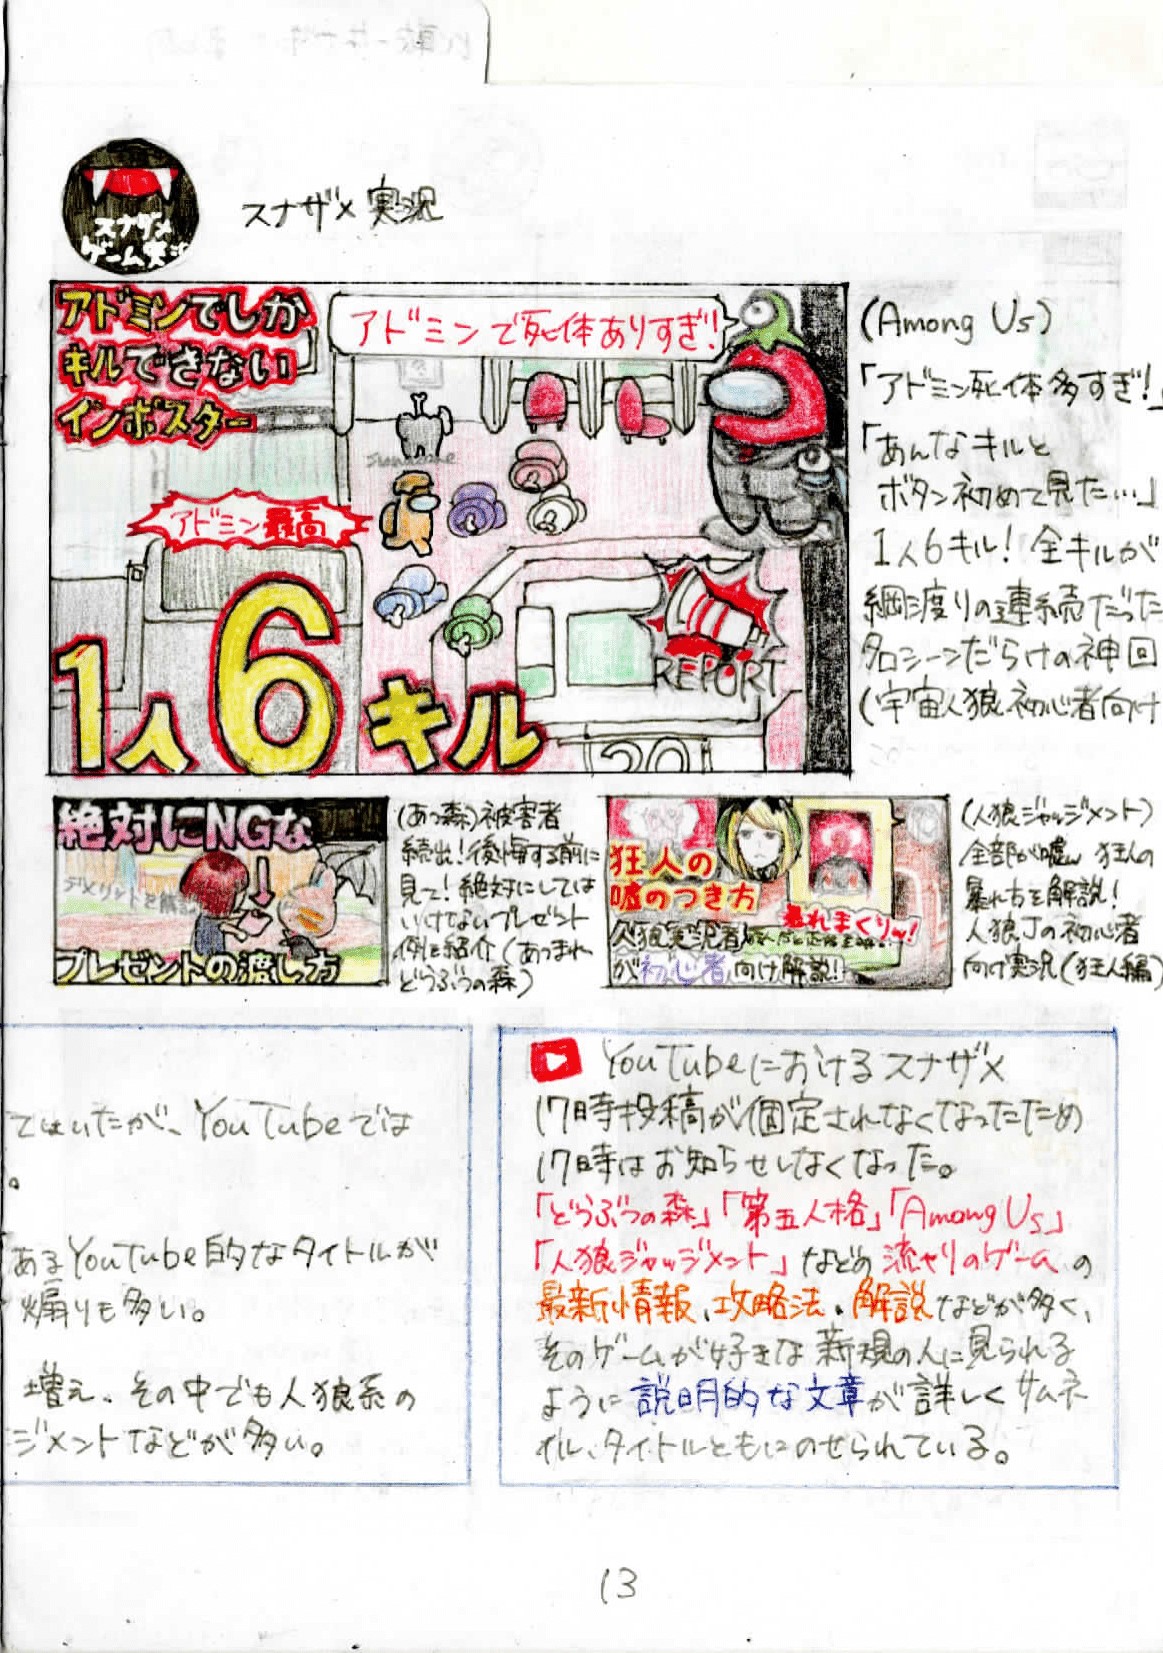 スナザメ
ゲーム実況
スナザメ実況
アドミンでしか
キルできない
インポスター
アドミンで死体ありすぎ!
アドミン最高
1人6キル
REPORT
(Among Us)
「アドミン死体多すぎ!」
「あんなキルと
ボタン初めて見た…」
1人6キル! 全キルが
綱渡りの連続だった
名シーンだらけの神回
(宇宙人狼初心者向け
絶対にNGな
デメリットを解説
プレゼントの渡し方
(あつ森)被害者
続出!後悔する前に
見て!絶対にしては
いけないプレゼント
例を紹介(あつまれ
どうぶつの森)
狂人の
嘘のつき方
暴れまくりw!
人狼実況者
が初心者向け解説!
(人狼ジャッジメント)
全部が嘘w 狂人の
暴れ方を解説!
人狼Jの初心者
向け実況(狂人編)
ていたが、YouTubeでは
。
あるYouTube的なタイトルが
煽りも多い。
増え、その中でも人狼系の
ジメントなどが多い。
YouTubeにおけるスナザメ
17時投稿が固定されなくなったため
17時はお知らせしなくなった。
「どうぶつの森」「第五人格」「Among Us」
「人狼ジャッジメント」などの流行りのゲームの
最新情報、攻略法・解説などが多く、
そのゲームが好きな新規の人に見られる
ように説明的な文章が詳しくサムネ
イル、タイトルともにのせられている。
13